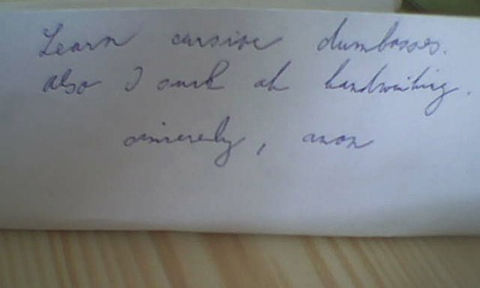 Learn cursive dumbasses.
also I suck at handwriting.
sincerely, anon